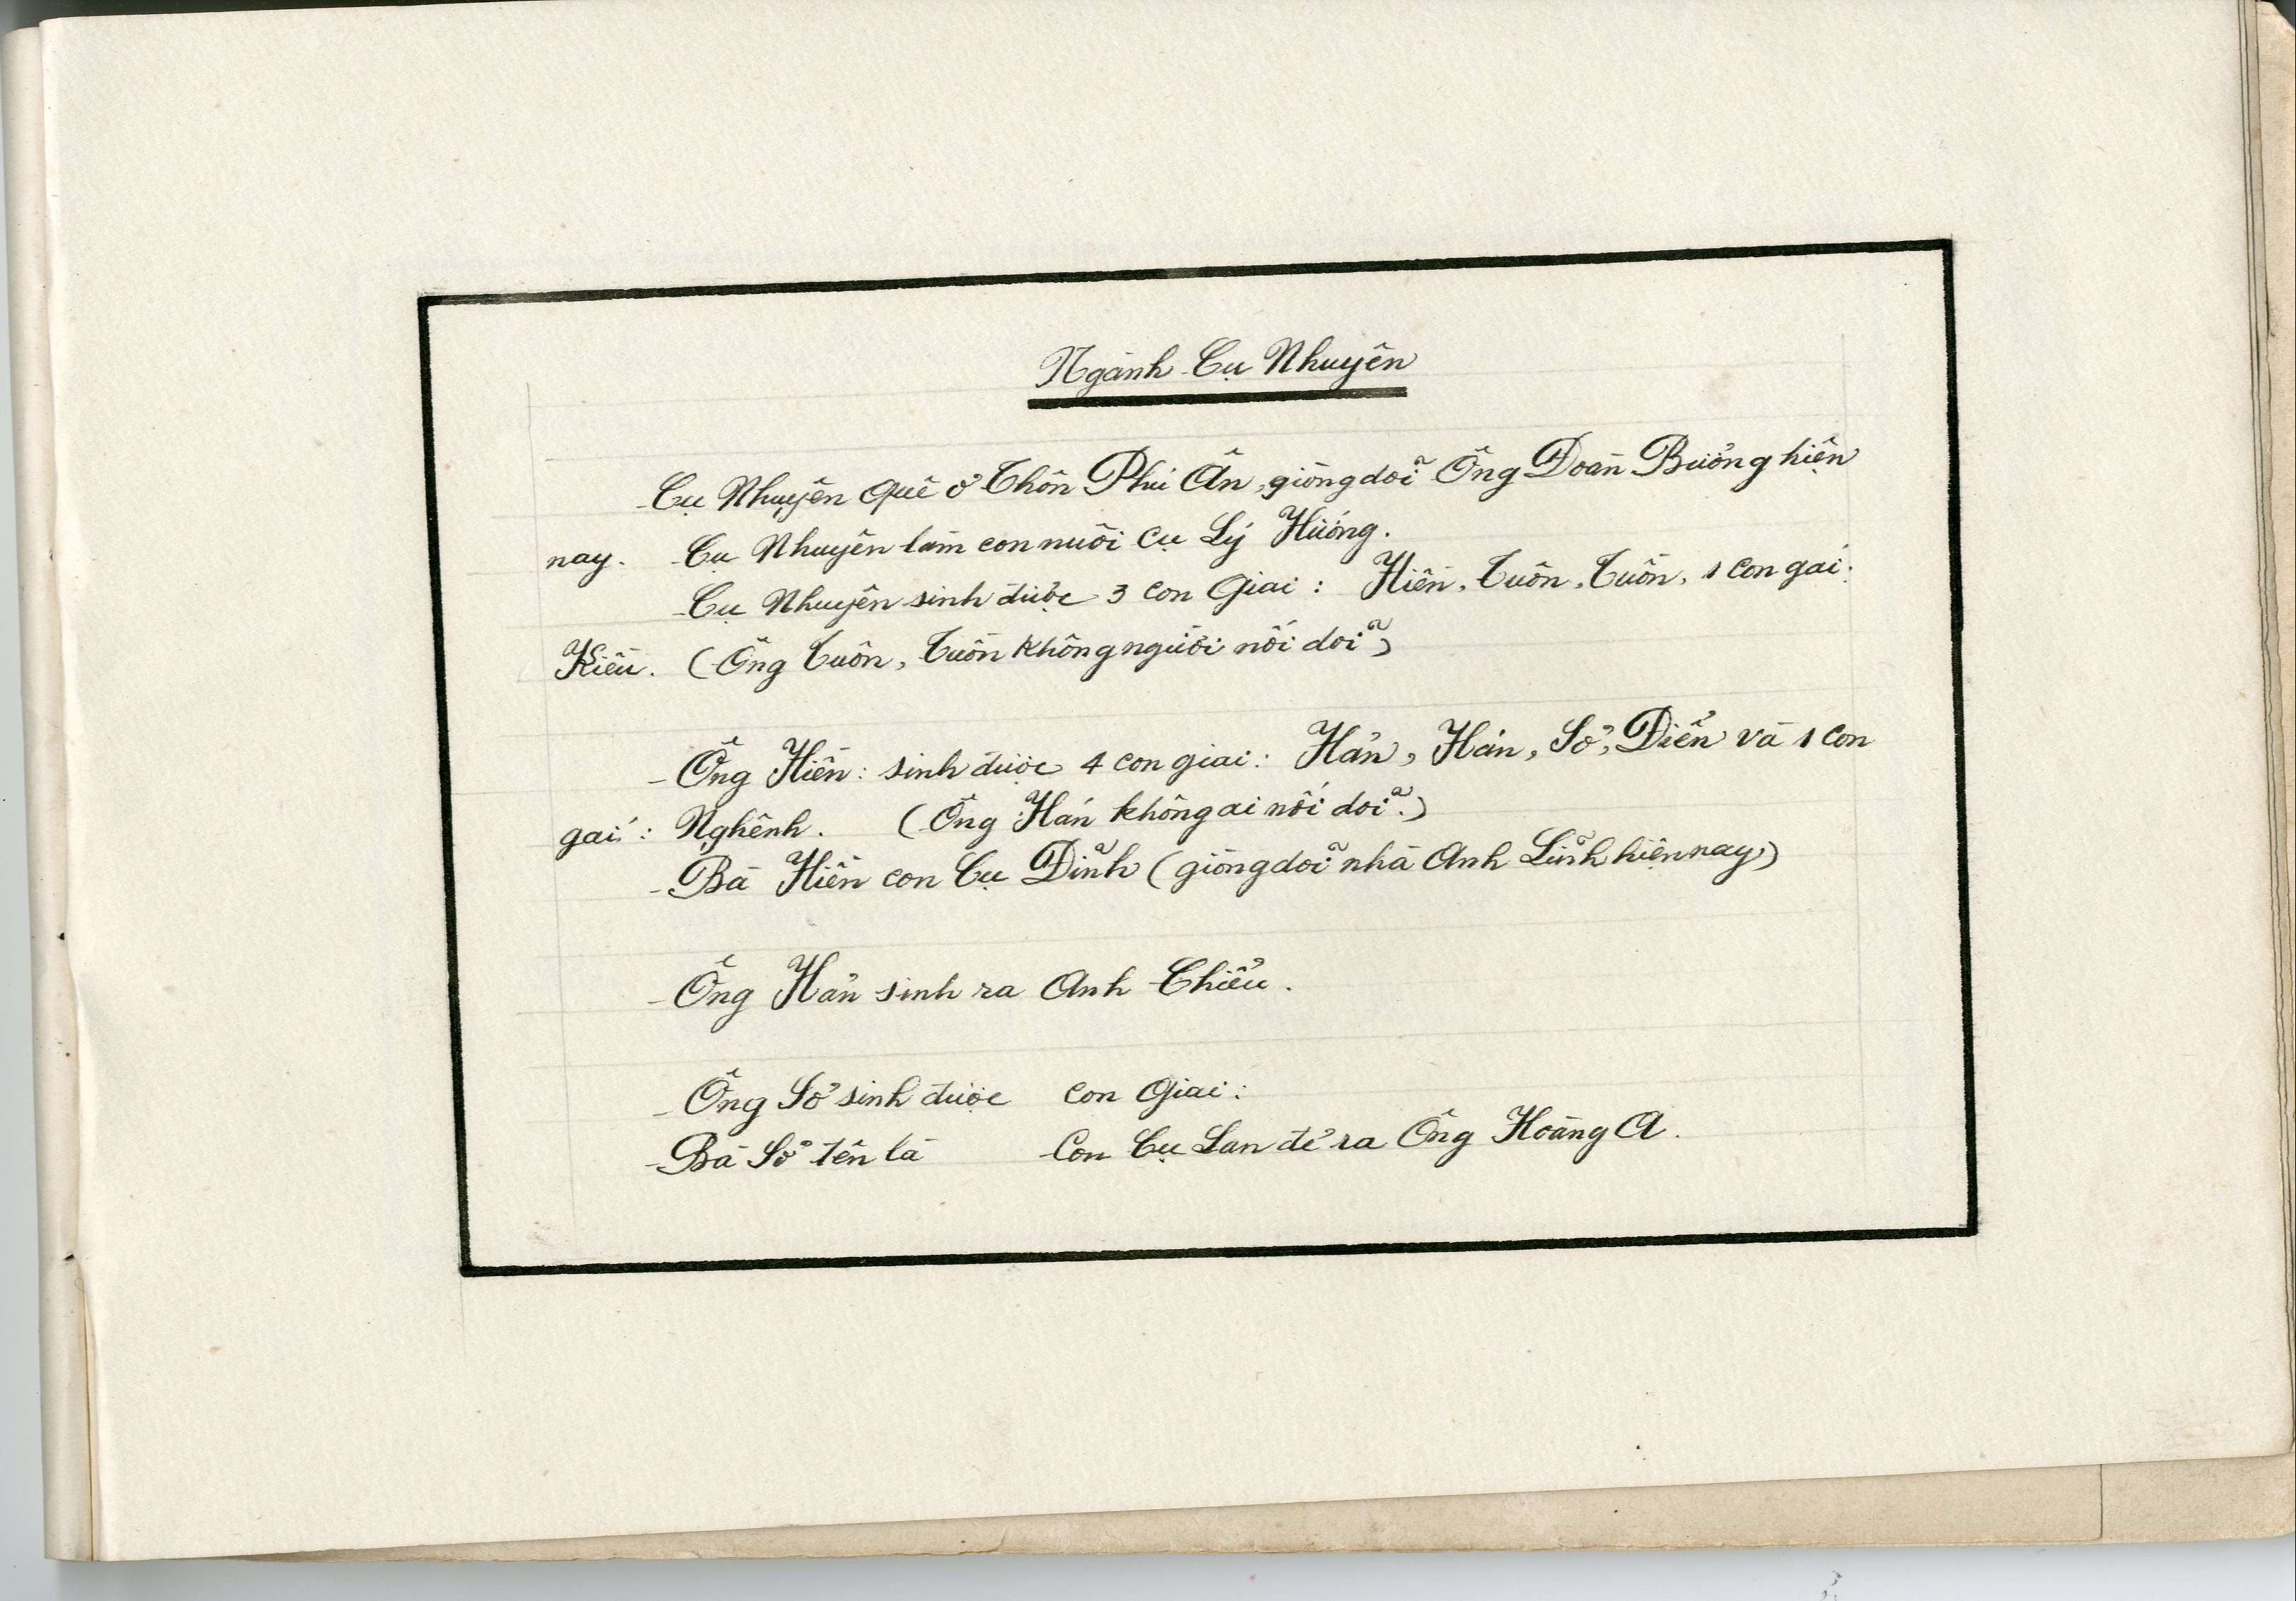 Ngành Cụ Nhuyên
Cụ Nhuyên Quê ở Thôn Phú Ân, giòng dõi Ông Đoàn Bưởng hiện
nay. Cụ Nhuyên làm con nuôi Cụ Lý Hướng.
Cụ Nhuyên sinh được 3 Con Giai: Hiên, Tuôn, Tuồn, 1 Con gái:
Kiều. (Ông Tuôn, Tuồn không người nối dõi)
- Ông Hiên: sinh được 4 con giai: Hản, Hán, Sở, Diễn và 1 Con
gái: Nghênh. (Ông Hán không ai nối dõi.)
- Bà Hiên con Cụ Dĩnh (giòng dõi nhà Anh Lĩnh hiện nay)
- Ông Hản sinh ra Anh Chiểu.
- Ông Sở sinh được con Giai:
- Bà Sở tên là Con Cụ Lan đẻ ra Ông Hoàng A.